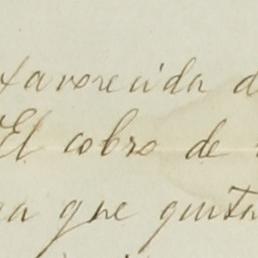 favorecida d
El cobro de
que quita